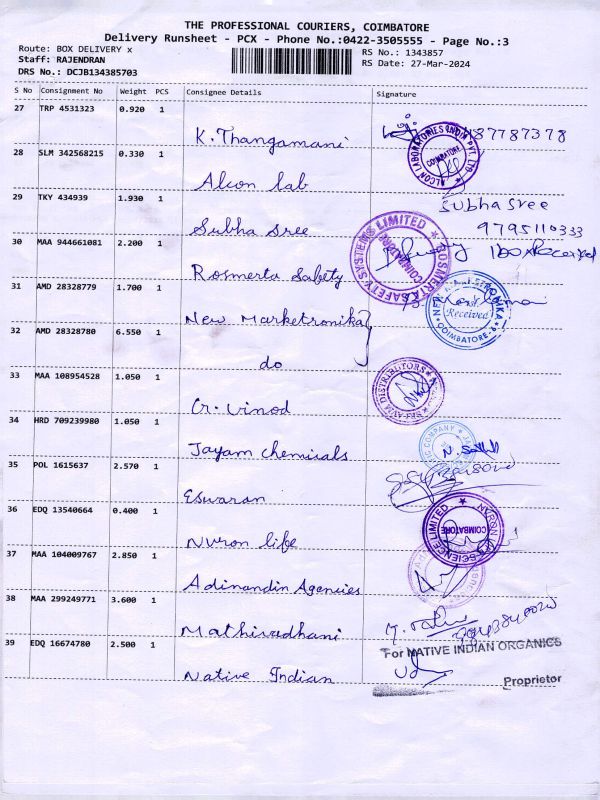 THE PROFESSIONAL COURIERS, COIMBATORE
Delivery Runsheet - PCX - Phone No.:0422-3505555 - Page No.:3
Route: BOX DELIVERY x
RS No.: 1343857
Staff: RAJENDRAN
RS Date: 27-Mar-2024
DRS No.: DCJB134385703
S No Consignment No Weight PCS Consignee Details Signature
27 TRP 4531323 0.920 1
K. Thangamani
28 SLM 342568215 0.330 1
ALCON LABORATORIES (INDIA) PVT. LTD
COIMBATORE
Alcon lab
29 TKY 434939 1.930 1
Subha Sree
9795110333
Subha Sree
30 MAA 944661081 2.200 1
1 Box Received
ROSMERTA SAFETY SYSTEMS LIMITED
COIMBATORE
Rosmerta Safety
31 AMD 28328779 1.700 1
New Marketronika
Received
COIMBATORE-6
32 AMD 28328780 6.550 1
do
33 MAA 108954528 1.050 1
DISTRIBUTORS
Cr. Vinod
34 HRD 709239980 1.050 1
COMPANY
Jayam chemicals
35 POL 1615637 2.570 1
Eswaran
36 EDQ 13540664 0.400 1
SCIENCE LIMITED
COIMBATORE
Nuron life
37 MAA 104009767 2.850 1
Adinandin Agencies
38 MAA 299249771 3.600 1
Mathivadhani
39 EDQ 16674780 2.500 1
For NATIVE INDIAN ORGANICS
Native Indian
Proprietor